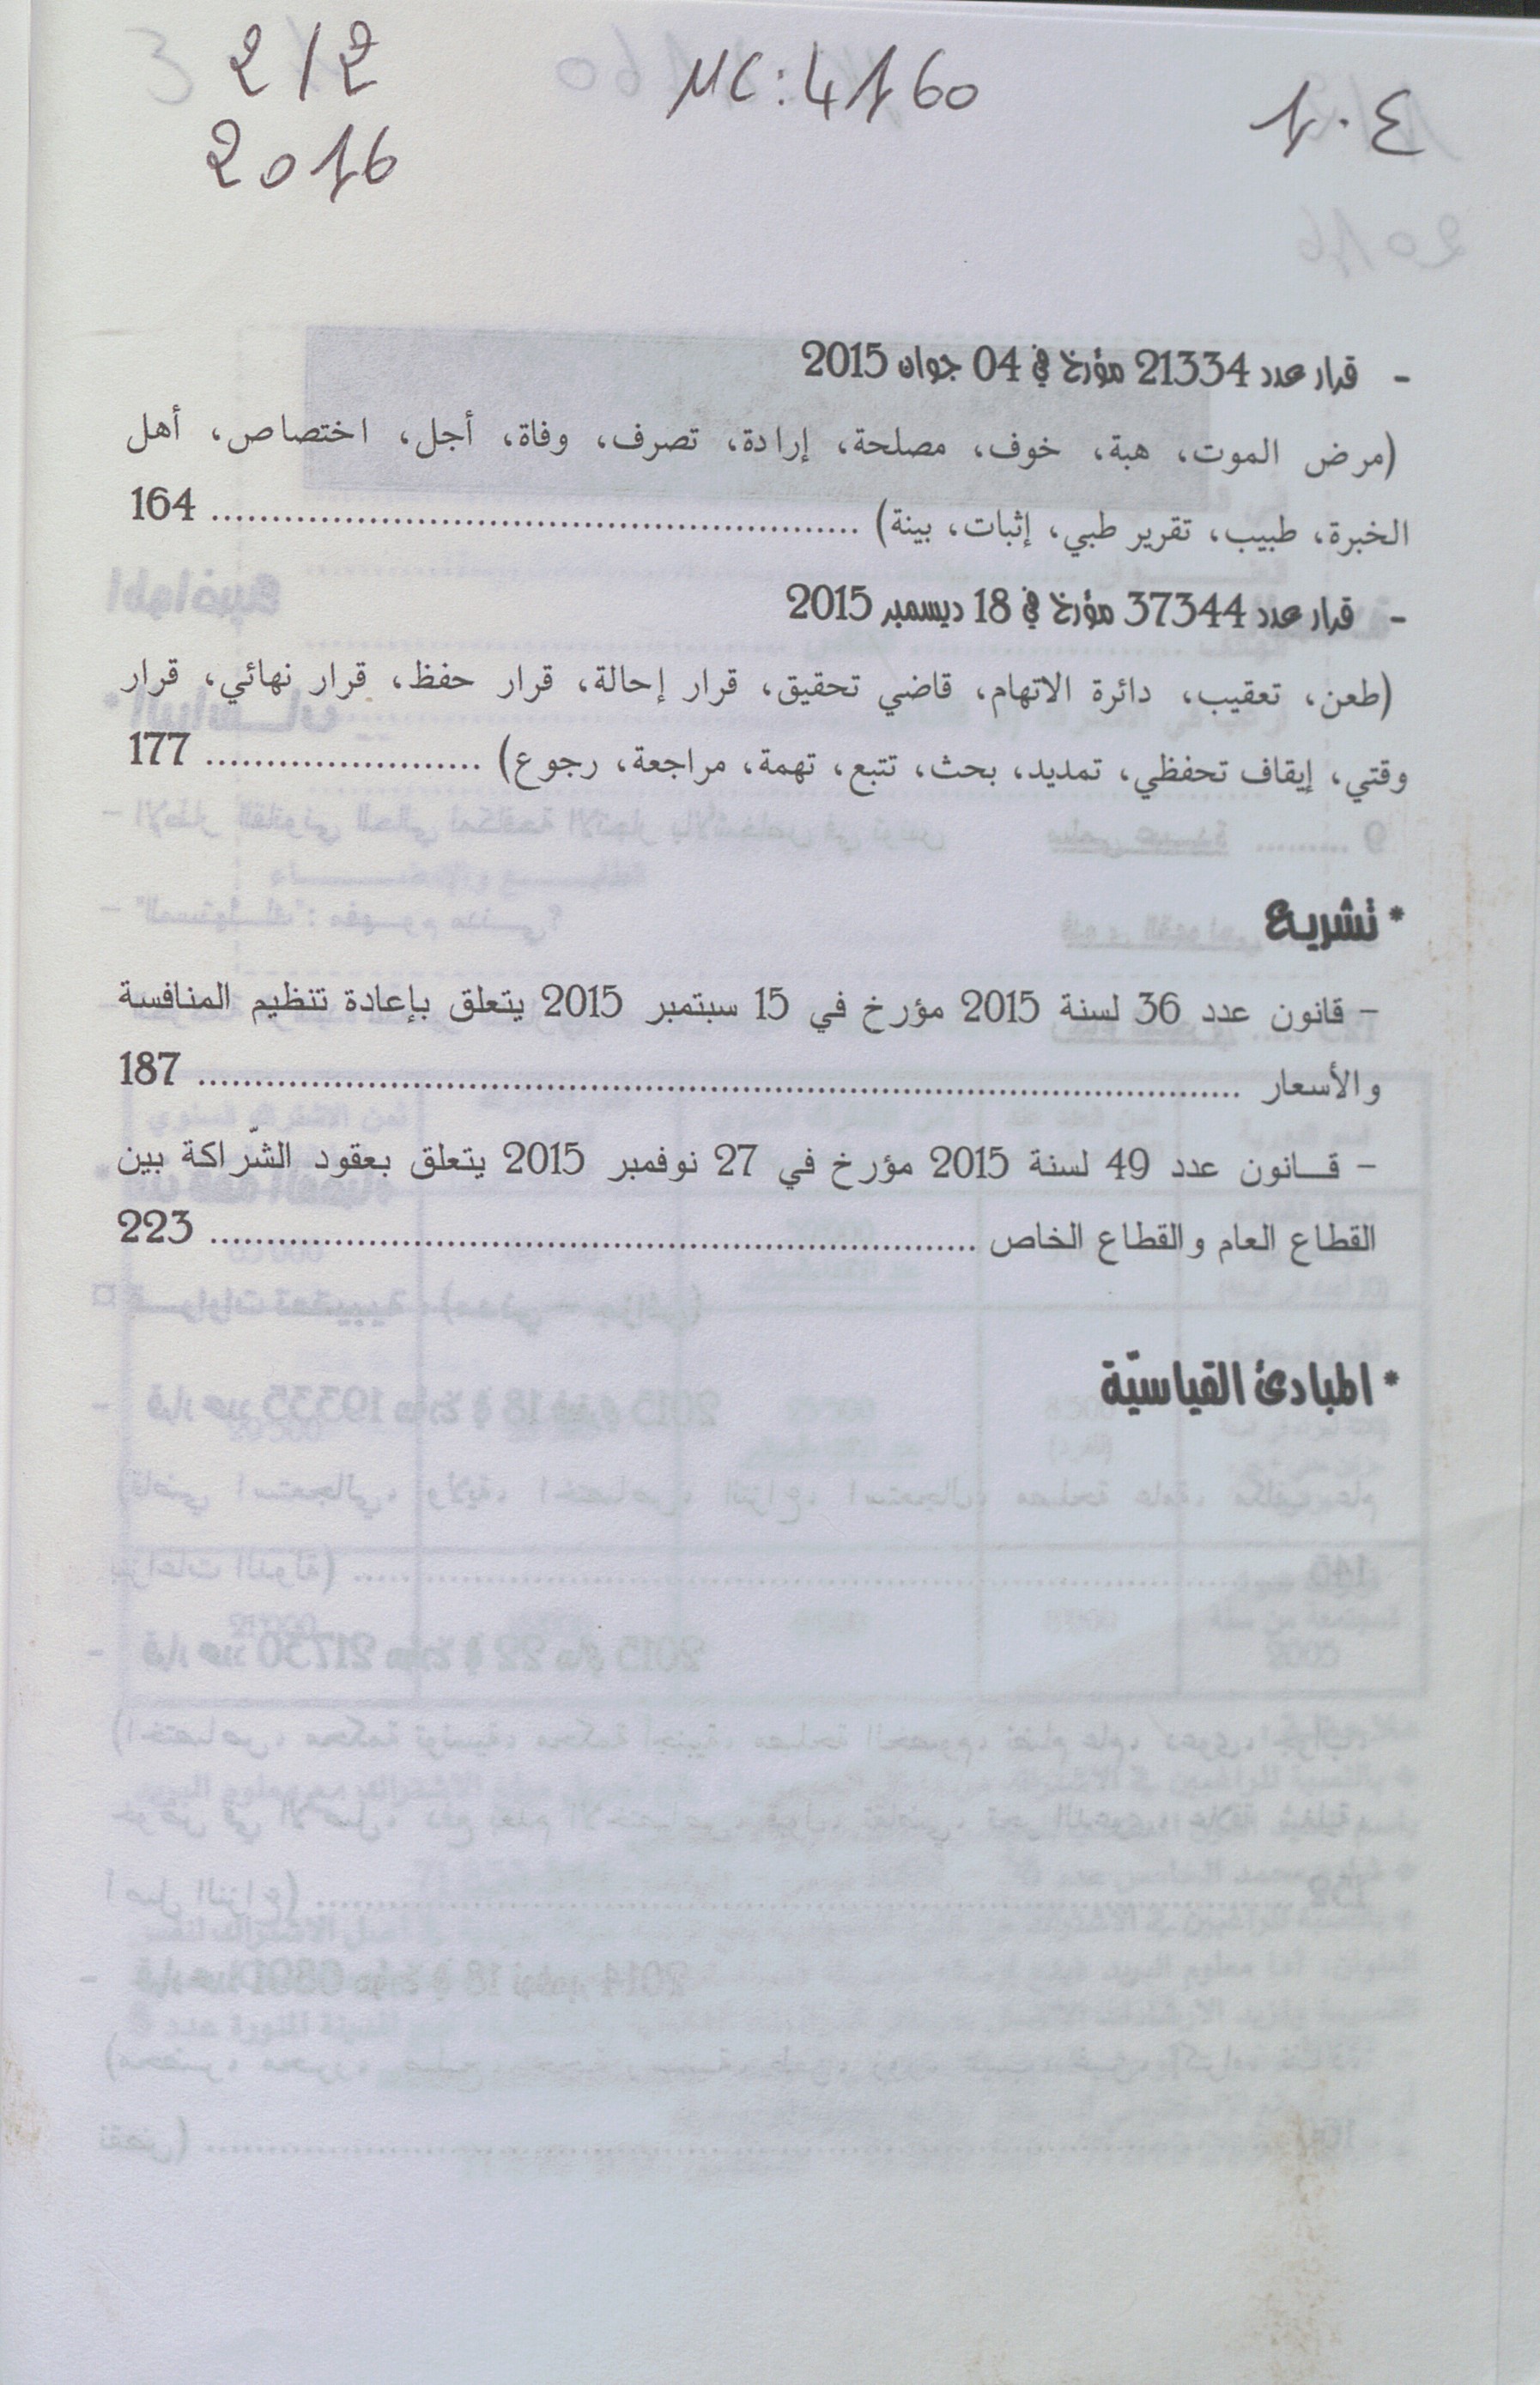 2/2
2016
MC: 4160
1.ع
- قرار عدد 21334 مؤرخ في 04 جوان 2015
(مرض الموت، هبة، خوف، مصلحة، إرادة، تصرف، وفاة، أجل، اختصاص، أهل
الخبرة، طبيب، تقرير طبي، إثبات، بينة) ........................................ 164
- قرار عدد 37344 مؤرخ في 18 ديسمبر 2015
(طعن، تعقيب، دائرة الاتهام، قاضي تحقيق، قرار إحالة، قرار حفظ، قرار نهائي، قرار
وقتي، إيقاف تحفظي، تمديد، بحث، تتبع، تهمة، مراجعة، رجوع) ....................... 177
* تشريع
- قانون عدد 36 لسنة 2015 مؤرخ في 15 سبتمبر 2015 يتعلق بإعادة تنظيم المنافسة
والأسعار ........................................ 187
- قـــانون عدد 49 لسنة 2015 مؤرخ في 27 نوفمبر 2015 يتعلق بعقود الشّراكة بين
القطاع العام والقطاع الخاص ........................................ 223
* المبادئ القياسيّة